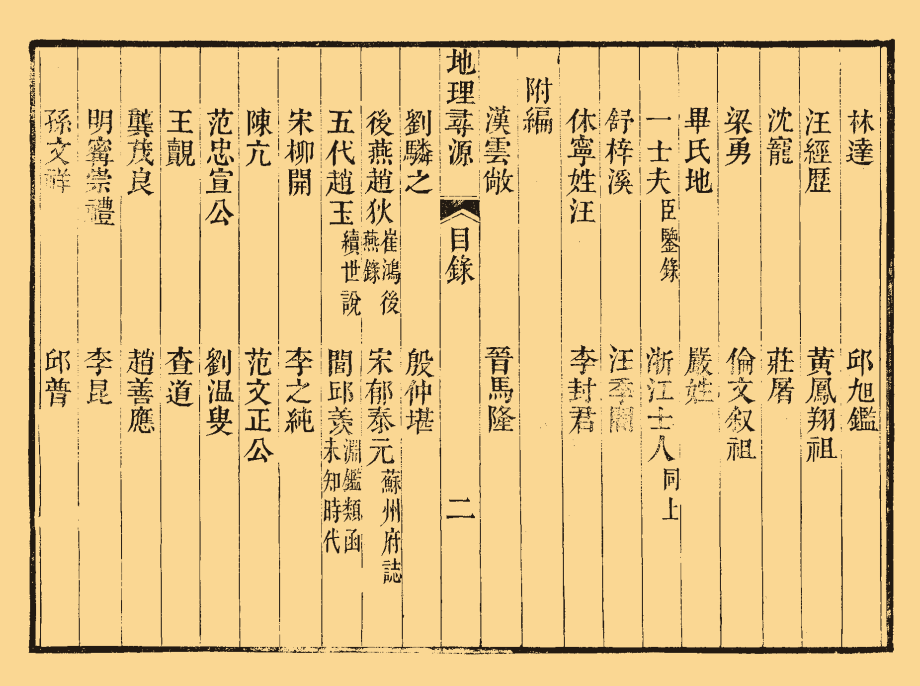 林達 邱旭鑑
汪經歷 黃鳳翔祖
沈寵 莊屠
梁勇 倫文叙祖
畢氏地 嚴姓
一士夫臣鑒錄 浙江士人同上
舒梓溪 汪季
休寧姓汪 李封君
附編
漢雲敞 晉馬隆
地理尋源 目錄 二
劉驎之 殷仲堪
後燕趙狄崔鴻後燕錄 宋郁泰元蘇州府誌
五代趙玉續世說 閭邱羡淵鑑類函未知時代
宋柳開 李之純
陳亢 范文正公
范忠宣公 劉温叟
王覿 查道
龔茂良 趙善應
明寗崇禮 李昆
孫文祥 邱普